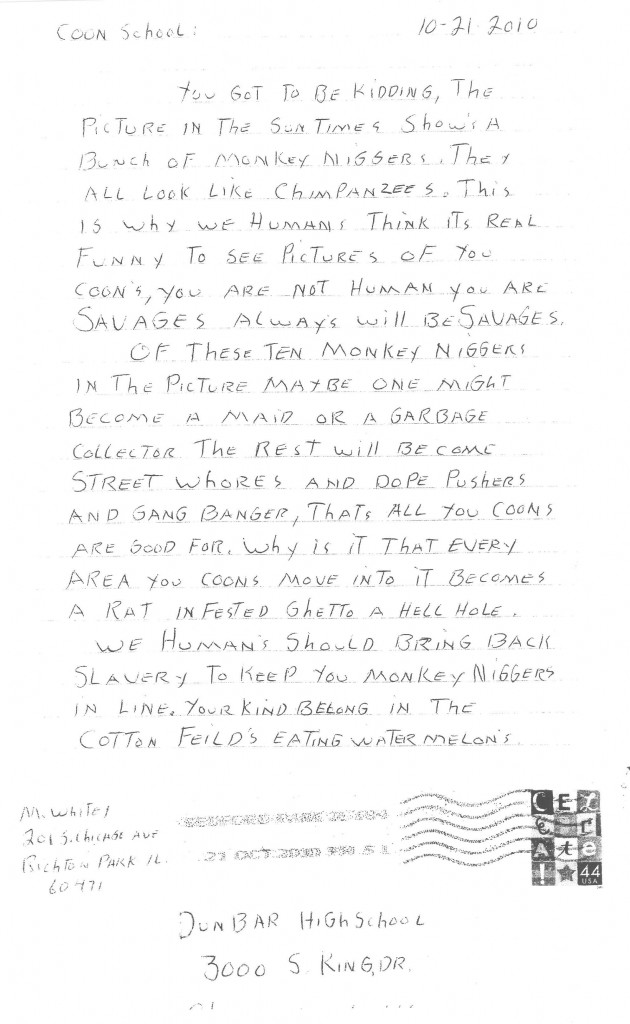 COON School:
10-21-2010
You GOT TO BE KIDDING, The
PICTURE IN The SUN TIMES Show's A
Bunch OF MONKEY NIGGERS. They
ALL LOOK LIKE ChIMPANZEES. This
IS Why WE HUMANS Think ITS REAL
FUNNY TO SEE PICTURES OF YOU
COON'S, YOU ARE NOT HUMAN you ARE
SAVAGES Always will BE SAVAGES.
OF THESE TEN MONKEY NIGGERS
IN The PICTURE MAYBE ONE MIGHT
BECOME A MAID OR A GARBAGE
COLLECTOR THE REST will BECOME
STREET WhORES AND DOPE PUSHERS
AND GANG BANGER, THATS ALL YOU COONS
ARE GOOD FOR. Why IS IT THAT EVERY
AREA YOU COONS MOVE INTO IT BECOMES
A RAT INFESTED GhETTO A HELL HOLE.
WE HUMAN'S ShOULD BRING BACK
SLAVERY TO KEEP YOU MONKEY NIGGERS
IN LINE. YOUR KIND BELONG IN The
COTTON FEILD'S EATING WATER MELON'S.
M. Whitey
201 S. Chicago AVE
Richton PARK IL.
60471
21 OCT 2010 PM
CELEbrAte!
44
USA
DUNBAR HIGh School
3000 S. KING, DR.